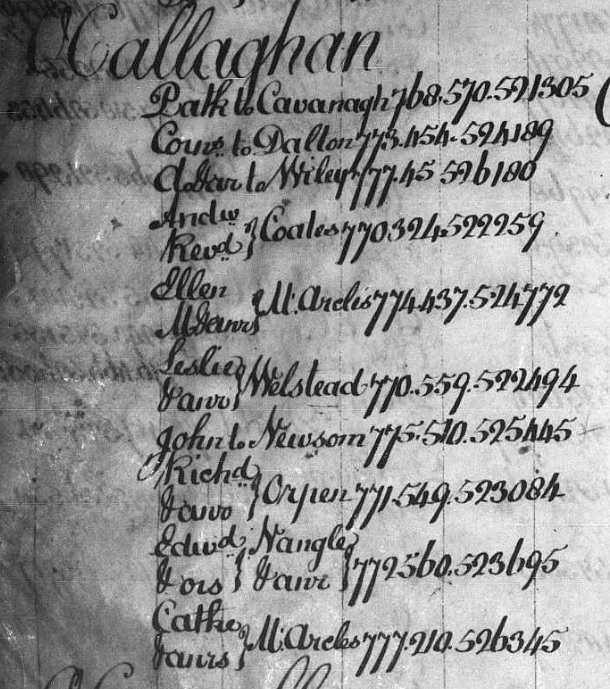 Callaghan
Patk to Cavanagh 768.570.521305
Corns. to Dalton 773.454.524189
to Wiley 777.45 526180
Andw
Revd } Coates 770324.522259
Ellen
} McAreles 774.437.524772
Leslie
& anr } Welstead 770.559.522494
John to Newsom 775.510.525445
Richd
& anr } Orpen 771.549.523084
Edwd } Nangle
& ors } & anr } 772560.523695
Cathe
& anrs } McAreles 777.210.526345